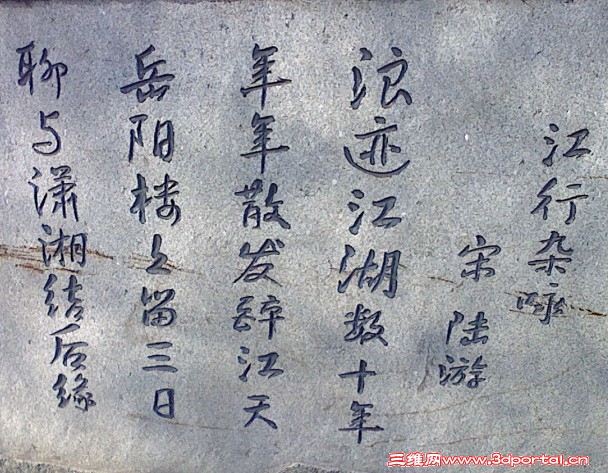 江行杂咏
宋 陆游
浪迹江湖数十年
年年散发醉江天
岳阳楼上留三日
聊与潇湘结后缘
三维网www.3dportal.cn